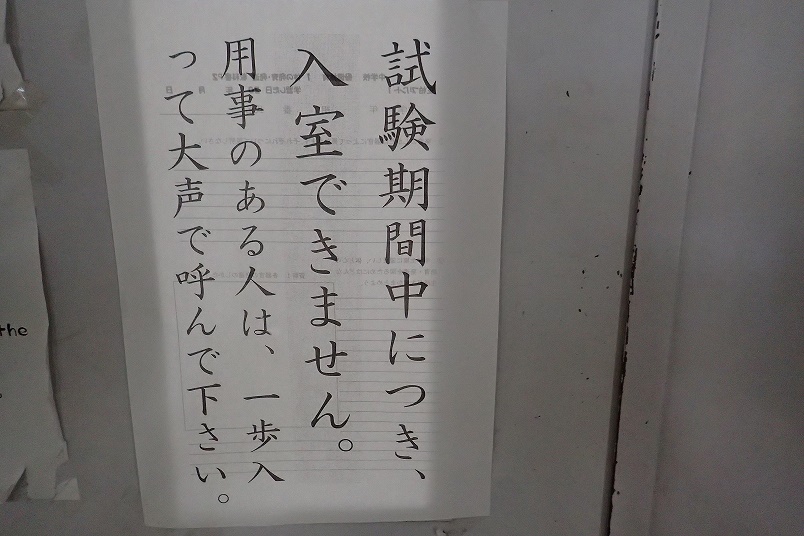 試験期間中につき、
入室できません。
用事のある人は、一歩入
って大声で呼んで下さい。
the